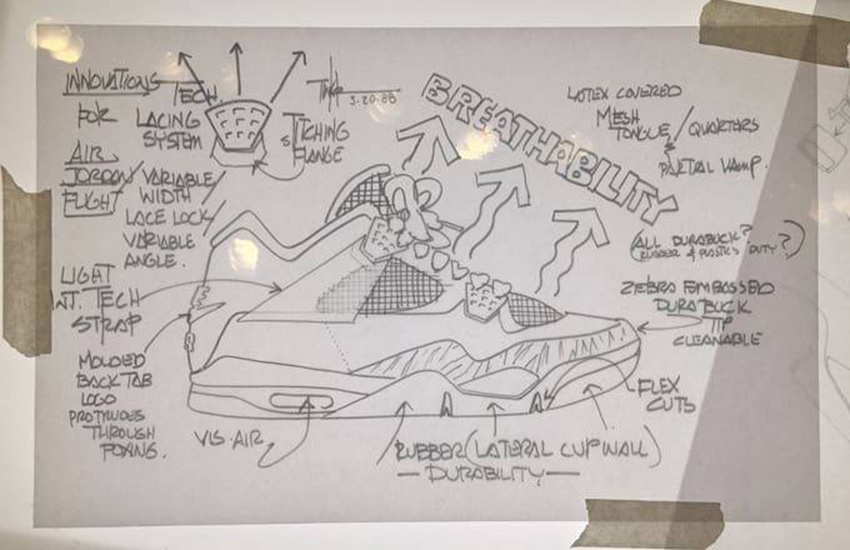 INNOVATIONS
FOR
AIR
JORDAN/
FLIGHT
TECH
LACING
SYSTEM
VARIABLE
WIDTH
LACE LOCK
VARIABLE
ANGLE.
STITCHING
FLANGE
3.20.88
BREATHABILITY
LATEX COVERED
MESH
TONGUE/QUARTERS
&
PARTIAL VAMP.
(ALL DURABUCK?
RUBBER & PLASTICS DUTY?)
ZEBRA EMBOSSED
DURABUCK
TIP
CLEANABLE
LIGHT
INT. TECH
STRAP
MOLDED
BACK TAB
LOGO
PROTRUDES
THROUGH
FOXING.
VIS-AIR
FLEX
CUTS
RUBBER (LATERAL CUPWALL)
— DURABILITY —